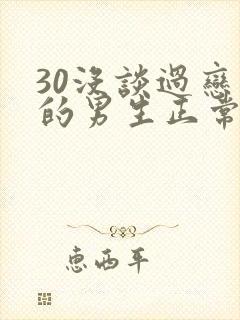 30沒談過戀
的男生正常
惠西平